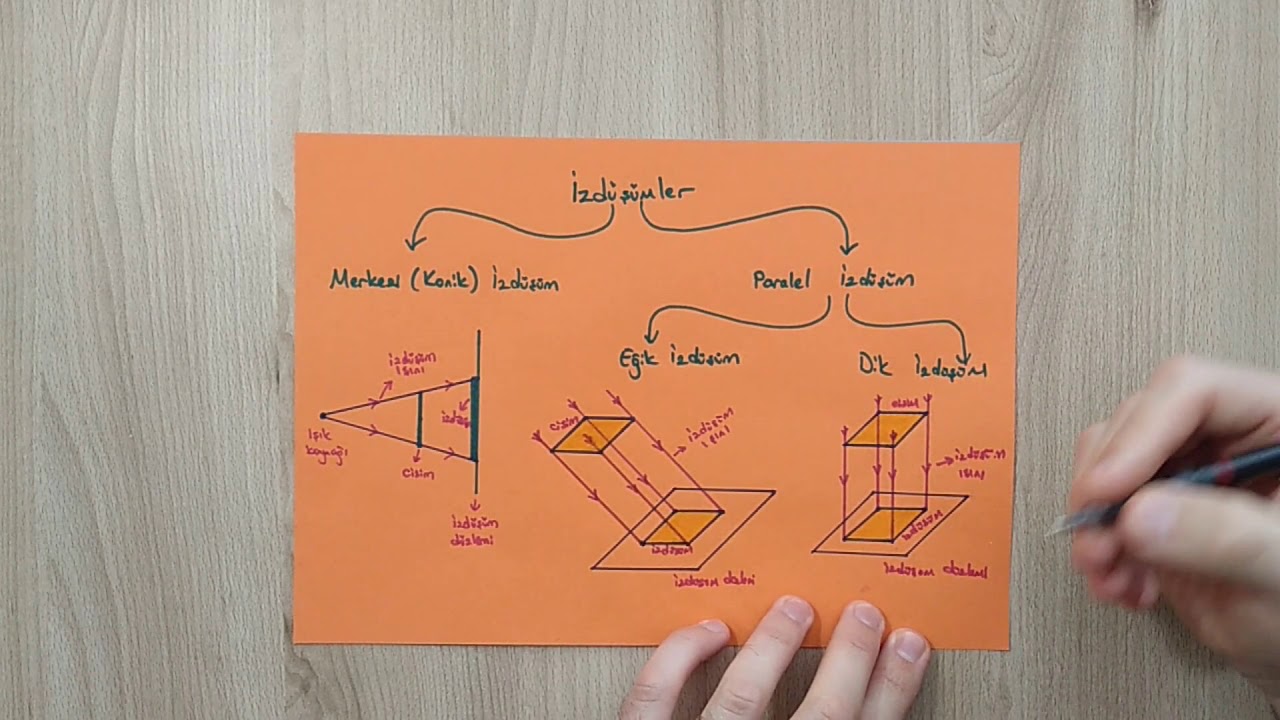 İzdüşümler
Merkezi (Konik) İzdüşüm
Paralel İzdüşüm
Eğik İzdüşüm
Dik İzdüşüm
izdüşüm
ışını
Işık
kaynağı
cisim
izdüşüm
düzlemi
cisim
izdüşüm
ışını
izdüşüm
izdüşüm
cisim
izdüşüm
ışını
izdüşüm
izdüşüm düzlemi